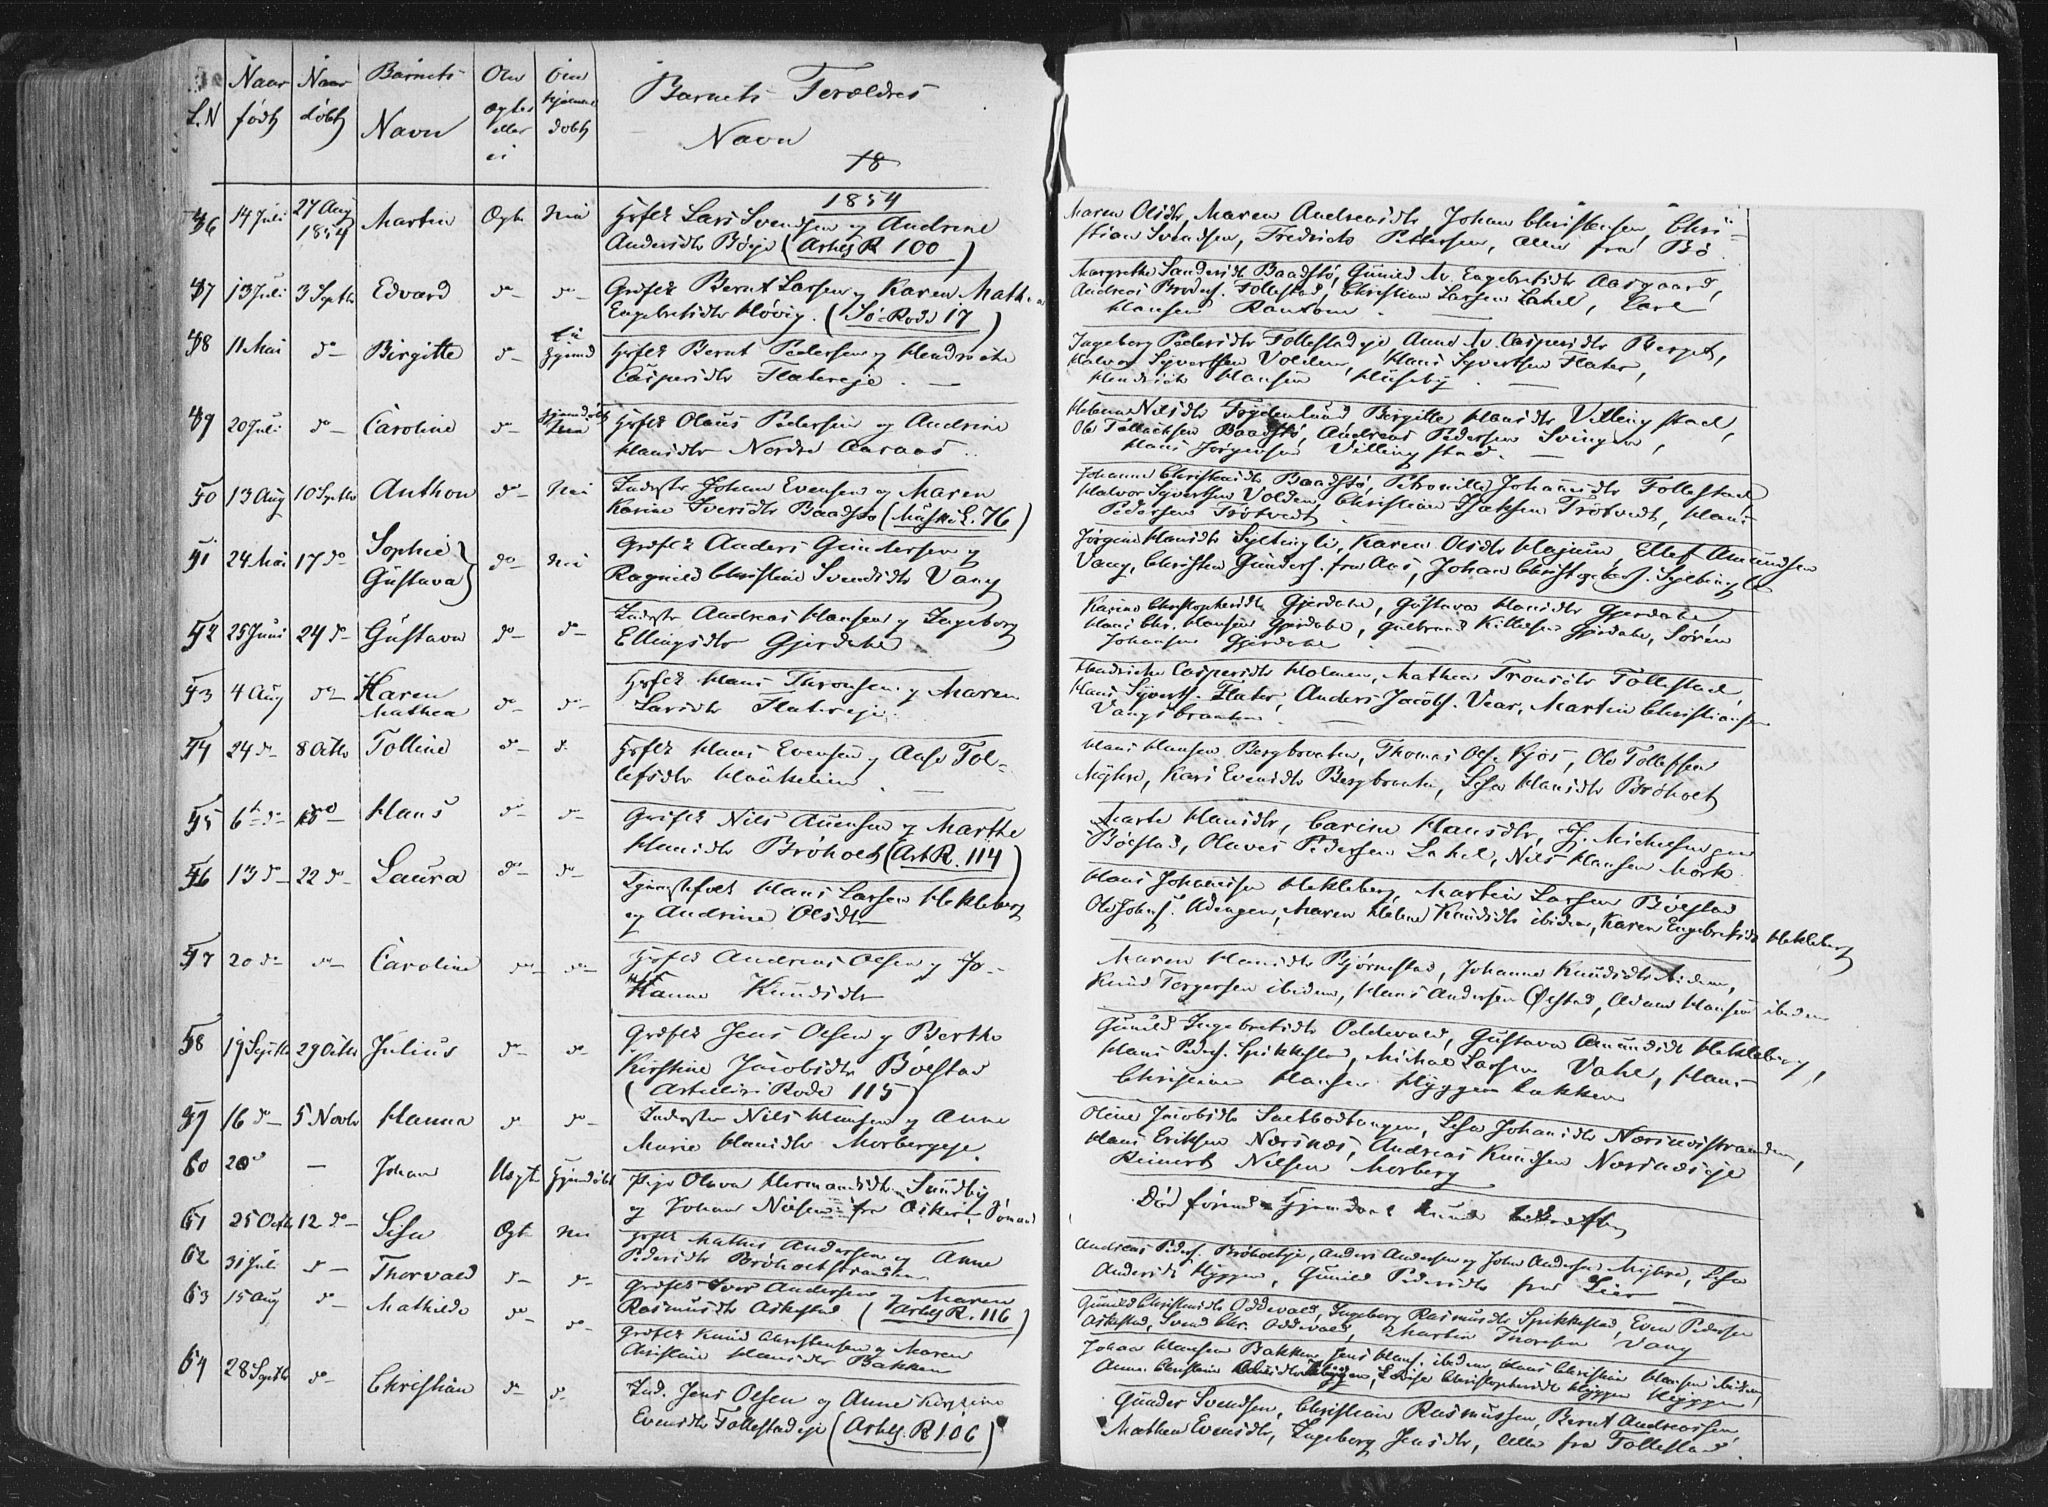 L.N Naar født Naar døbt Barnets Navn Om Ægte eller ei Om hjemme døbt Barnets Forældres Navn
18
1854
46 14 Juli 27 Aug 1854 Martin Ægte Nei Hosflk Lars Svendsen og Andrine
Andersdtr Bøeje (Arbejds R 100)
47 13 Juli 3 Septbr Edvard do do Grdflk Bernt Larsen og Karen Mathea
Engebretsdtr Høvig. (Sø-Rode 17)
48 11 Mai do Birgitte do Hosflk Bernt Pedersen og Hendrikke
Caspersdtr Flatereje.
49 20 Juli do Caroline do hjemdøbt Nei Hosflk Olaus Pedersen og Andrine
Hansdtr Nordre Aaraas.
50 13 Aug 10 Septbr Anthon do Nei Inderster Johan Evensen og Maren
Karine Iversdtr Baadstø (Muske L. 76)
51 24 Mai 17 do Sophie Gustava do Nei Grdflk Anders Gundersen og
Ragnild Christine Svendsdtr Vang
52 25 Juni 24 do Gustava do do Inderster Andreas Hansen og Ingeborg
Ellingsdtr Gjerdahl
53 4 Aug do Karen Mathea do do Hosflk Hans Thronsen og Maren
Larsdtr Flatereje.
54 24 do 8 Octbr Tolline do do Hosflk Hans Evensen og Aase Tol-
lefsdtr Haukelien.
55 6te do 15 do Hans do do Grdflk Nils Auensen og Marthe
Hansdtr Brøholt (Art R. 114)
56 13 do 22 do Laura do do Tjenestefolk Hans Larsen Hekleberg
og Andrine Olsdtr
57 20 do do Caroline do do Hosflk Andreas Olsen og Jo-
hanne Knudsdtr
58 19 Septbr 29 Octbr Julius do do Grdflk Jens Olsen og Berthe
Kirstine Jacobsdtr Bøestad
(Artilleri Rode 115)
59 16 do 5 Novbr Hanna do do Inderster Nils Hansen og Anne
Marie Hansdtr Morbergeje.
60 20 do — Johan Uægt Hjemdøbt Pige Olava Hermansdtr Sundby
og Johan Nilsen fra Asker, Sømand
61 25 Octbr 12 do Lisa Ægte Nei Hosflk Mathis Andersen og Anne
Pedersdtr Brøholtstranden
62 31 Juli do Thorvald do do Grdflk Iver Andersen og Maren
Rasmusdtr Askestad (Arbejds R. 116)
63 15 Aug do Mathilde do do Grdflk Knud Christensen og Maren
Christine Hansdtr Bakken
64 28 Septbr do Christian do do Ind. Jens Olsen og Anne Kirstine
Evensdtr Follestadeje (Arbejds. R 106)
Maren Olsdtr, Maren Andreasdtr, Johan Christensen, Chri-
stian Svendsen, Fredrick Pettersen, alle fra Bø.
Margrethe Sandersdtr Baadstø, Gunild M. Engebretsdtr Aasgaard,
Andreas Bredes. Follestad, Christian Larsen Lahel, Carl
Hansen Rantom.
Ingeborg Pedersdtr Follestadeje Anne M. Caspersdtr Berget,
Halvor Syvertsen Volden, Hans Syvertsen Flater,
Hendrick Hansen Huseby.
Helene Nilsdtr Frydenlund Birgitte Hansdtr Villingstad,
Ole Tollefsen Baadstø, Andreas Pedersen Svingen,
Hans Jørgensen Villingstad.
Johanne Christensdtr Baadstø, Petronille Johannesdtr Follestad,
Halvor Syvertsen Volden, Christian Isaksen Trøtvedt, Hans
Pedersen Trøtvedt.
Jørgine Hansdtr Syltingli, Karen Olsdtr Hajum, Ellef Amundsen
Vang, Christen Gunders. fra Aas, Johan Christophers. Syltingli
Karine Christophersdtr Gjerdahl, Gustava Hansdtr Gjerdahl,
Hans Chr. Hansen Gjerdahl, Gulbrand Kittelsen Gjerdahl, Søren
Johansen Gjerdahl.
Hendrikke Caspersdtr Holmen, Mathea Tronsdtr Follestad,
Hans Syverts. Flater, Anders Jacobs. Vear, Martin Christiansen
Vangsbraaten.
Hans Hansen Bergbraaten, Thomas Ols. Kjos, Ole Tollefsen
Myhre, Kari Evensdtr Bergbraaten, Lisa Hansdtr Brøholt
Marte Hansdtr, Carine Hansdtr, J. Michelsen
Bøestad, Olaves Pedersen Lahel, Nils Hansen Mork.
Hans Johannesen Hekleberg, Martin Larsen Bøestad
Ole Johns. Adengen, Maren Helene Knudsdtr ibidem, Karen Engebretsdtr Hekleberg
Maren Hansdtr Bjørnstad, Johanne Knudsdtr ibidem,
Knud Torgersen ibidem, Hans Andersen Øvstad, Hansen ibidem
Gunild Ingebretsdtr Oddevald, Gustava Amundsdtr Hekleberg,
Hans Peders. Spikkestad, Michal Larsen Vahl, Hans
Christian Hansen Hyggen bakken
Oline Jacobsdtr Saltbodtangen, Lisa Johansdtr Nærsnæsstranden,
Hans Eriksen Nærsnæs, Andreas Knudsen Nærsnæseje
Reinert Nilsen Morberg
Død førend Hjemdaab kunde
Andreas Peders. Brøholteje, Anders Andersen og John Andersen Myhre, Lisa
Andersdtr Hyggen, Gunild Pedersdtr fra Lier
Gunild Christensdtr Oddevald, Ingeborg Rasmusdtr Spikkestad, Even Pedersen
Askestad, Svend Chr. Oddevald, Martin Thoresen Vang
Johan Hansen Bakken, Jens Hans. ibidem, Hans Christian Hansen ibidem
Anne Christine Hyggen, Lovise Christophersdtr Hyggen
Gunder Svendsen, Christian Rasmussen, Bernt Andreassen,
Mathea Evensdtr, Ingeborg Jensdtr, alle fra Follestad